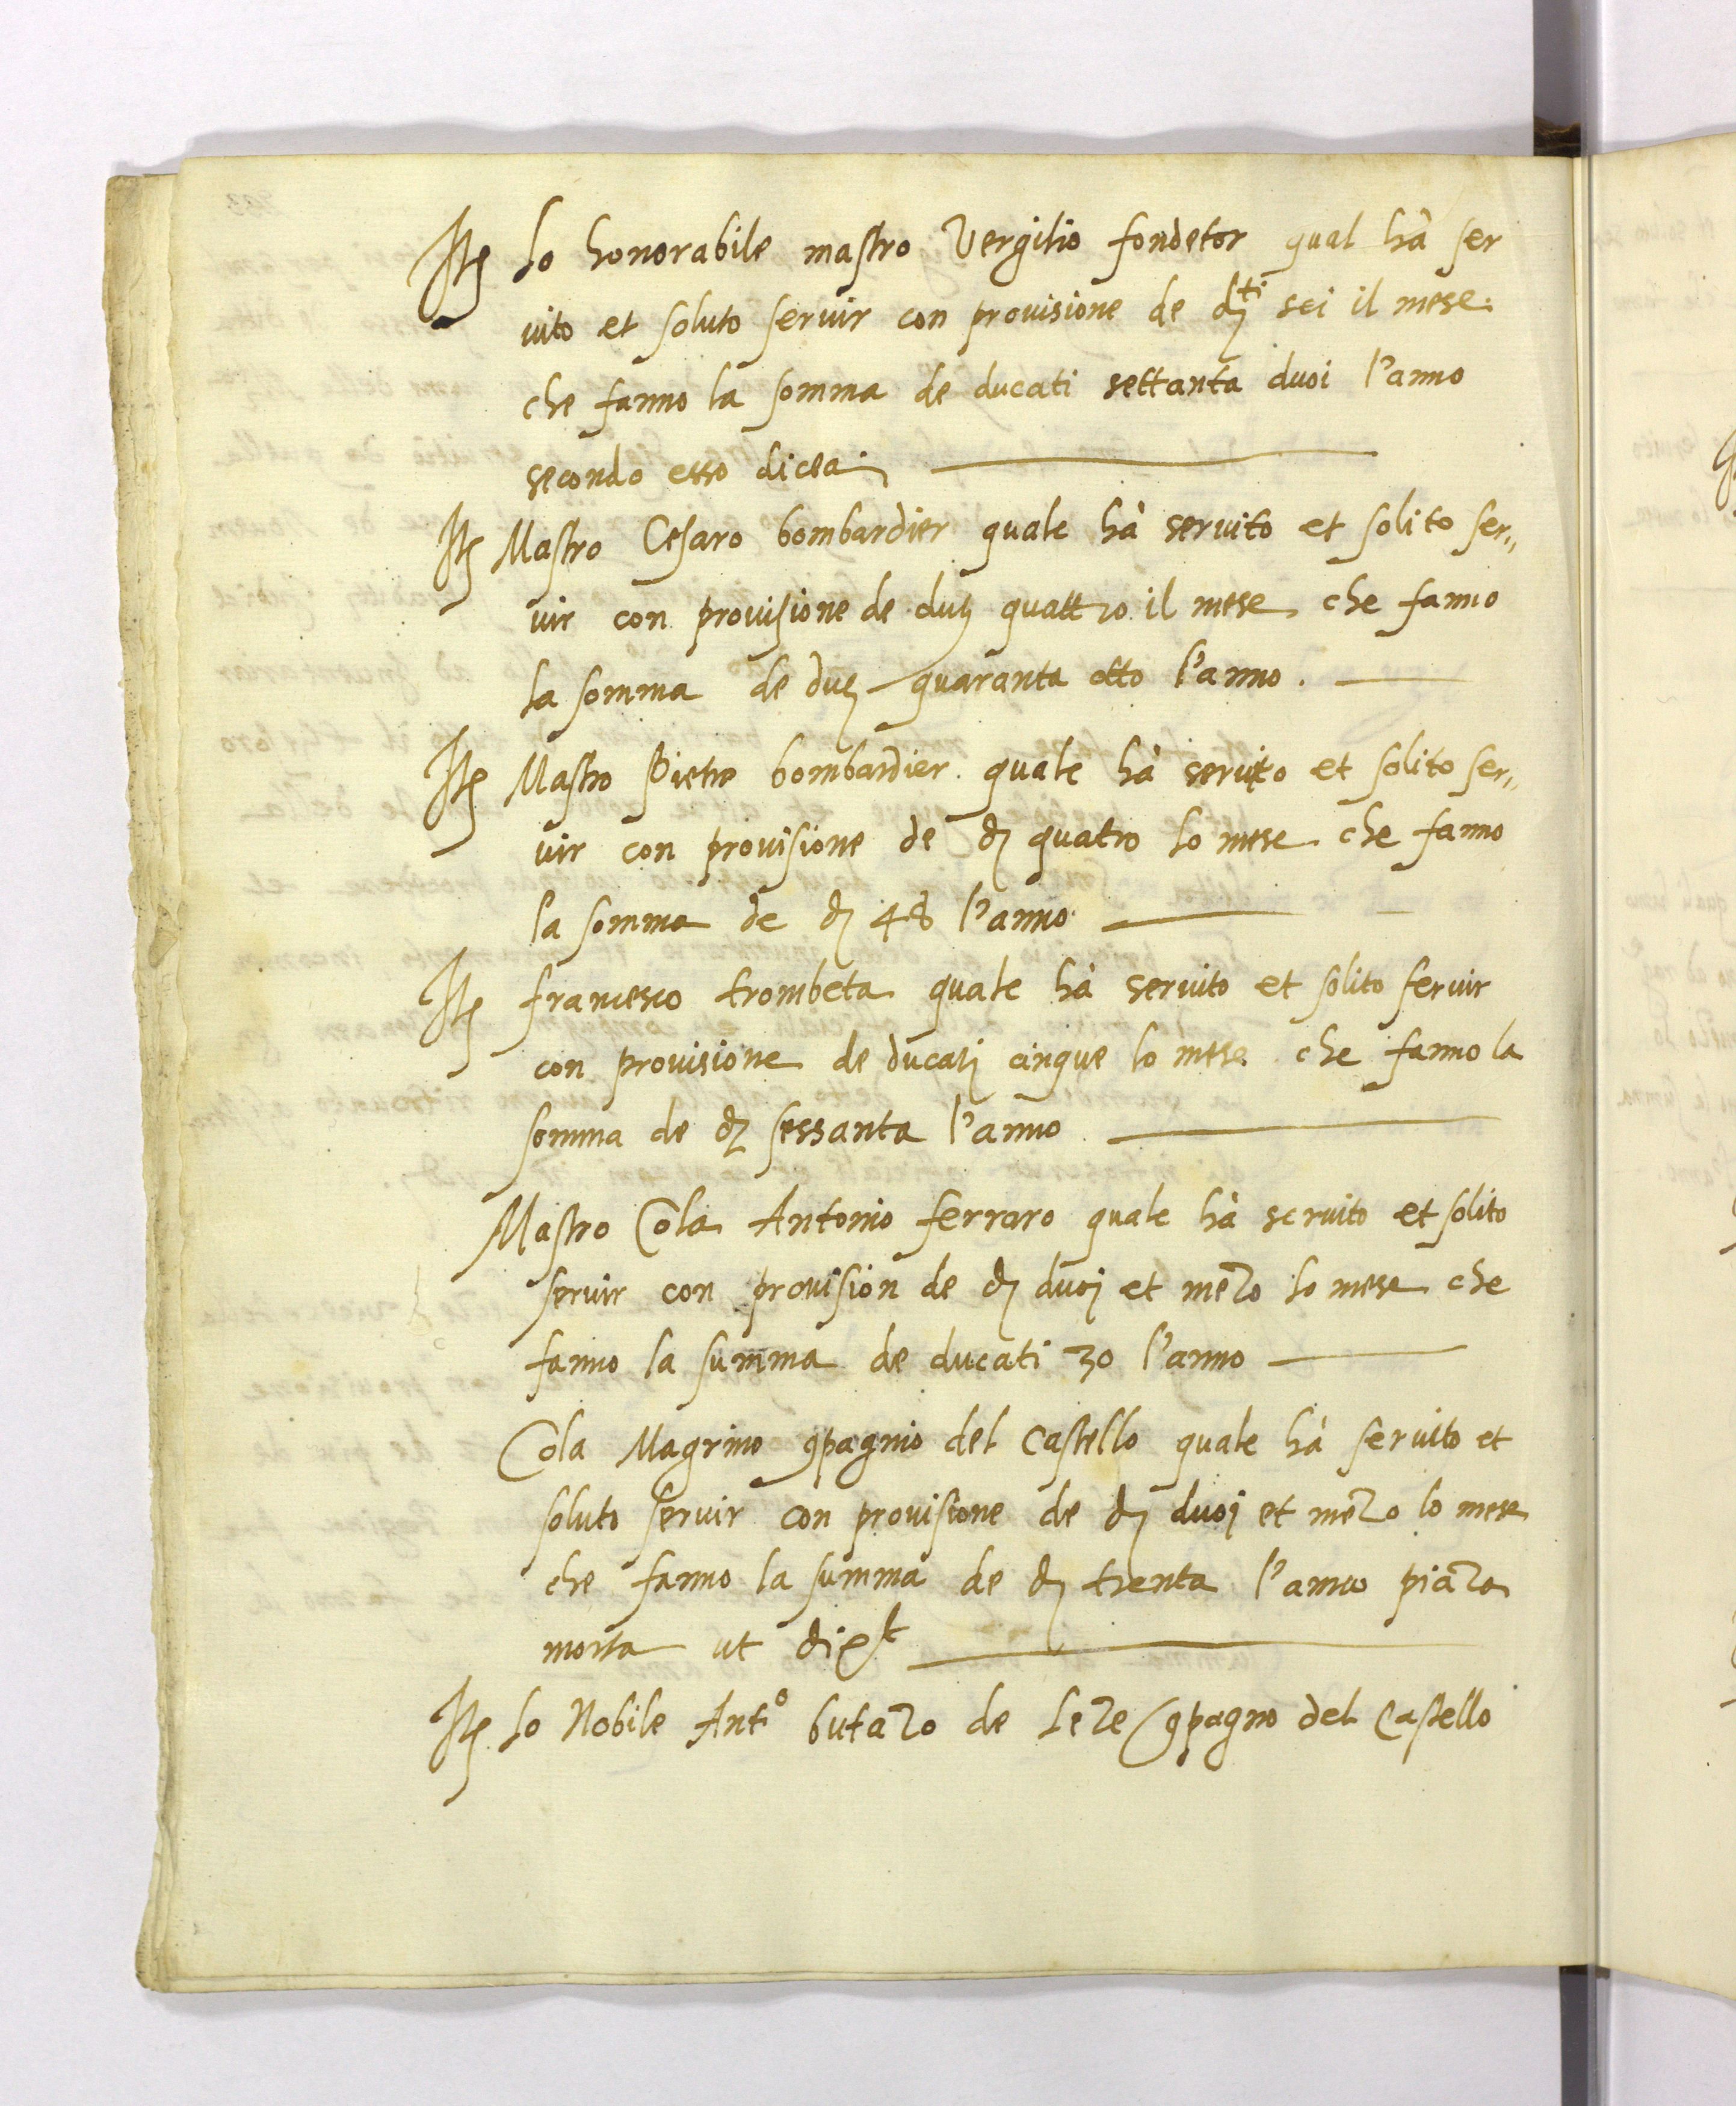 Itẽ lo honorabile mastro Vergilio fondetor qual hà ser
uito et soluto seruir con prouisione de dti sei il mese.
che fanno la somma de ducati settanta duoi l'anno
secondo esso dicea.
Itẽ Mastro Cesaro bombardier quale hà seruito et solito ser„
uir con prouisione de duc quattro il mese che fanno
la somma de duc quaranta otto l'anno.
Itẽ Mastro Pietro bombardier quale hà seruito et solito ser„
uir con prouisione de d quatro lo mese che fanno
la somma de d 48 l'anno
Itẽ francesco trombeta quale hà seruito et solito seruir
con prouisione de ducati cinque lo mese che fanno la
somma de d sessanta l'anno
Mastro Cola Antonio ferraro quale hà seruito et solito
seruir con prouision de d duoj et mezo lo mese che
fanno la summa de ducati 30 l'anno
Cola Magrino 9pagnio del castello quale hà seruito et
soluto seruir con prouisione de d duoj et mezo lo mese
che fanno la summa de d trenta l'anno piaza
morta ut dixit
Itẽ lo Nobile Antº butazo de leze 9pagno del Castello